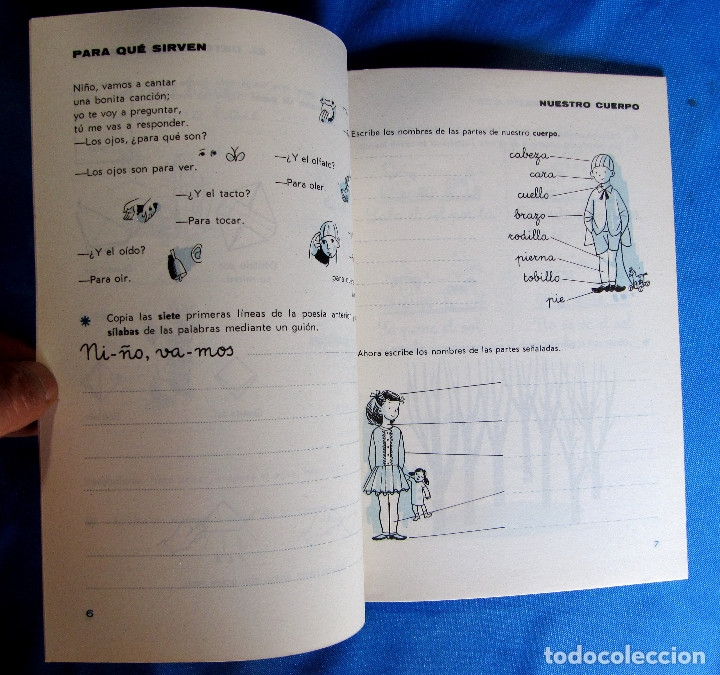 PARA QUÉ SIRVEN
Niño, vamos a cantar
una bonita canción;
yo te voy a preguntar,
tú me vas a responder.
—Los ojos, ¿para qué son?
—Los ojos son para ver.
—¿Y el olfato?
—Para oler.
—¿Y el tacto?
—Para tocar.
—¿Y el oído?
—Para oir.
para
* Copia las siete primeras líneas de la poesía anterior
sílabas de las palabras mediante un guión.
Ni-ño, va-mos
6
NUESTRO CUERPO
Escribe los nombres de las partes de nuestro cuerpo.
cabeza
cara
cuello
brazo
rodilla
pierna
tobillo
pie
Ahora escribe los nombres de las partes señaladas.
7
todocoleccion